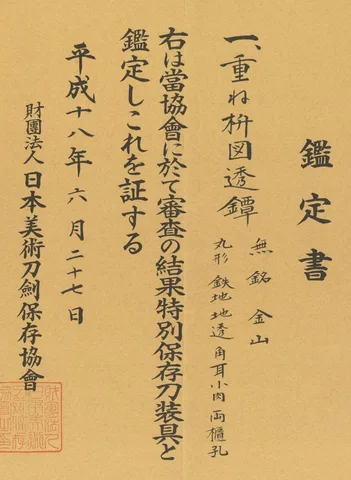 鑑定書
一、重ね枡図透鐔
無銘 金山
丸形 鉄地地透 角耳小肉 両櫃孔
右は當協會に於て審査の結果特別保存刀装具と
鑑定しこれを証する
平成十八年六月二十七日
財團法人 日本美術刀劍保存協會